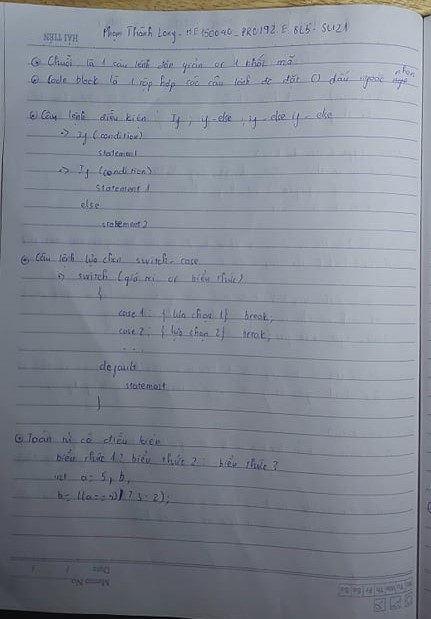 HẢI TIẾN
Phạm Thành Long - HE150040 - PRO192.E.BL5 - SU21
Chuỗi là 1 câu lệnh đơn giản or 1 khối mã
Code block là 1 tập hợp các câu lệnh đc đặt () dấu ngoặc nhọn
Câu lệnh điều kiện: If; if-else, if else if - else
=> If (condition)
statement
=> If (condition)
statement 1
else
statement 2
Câu lệnh lựa chọn switch-case
switch (giá trị or biểu thức)
{
case 1: { lựa chọn 1} break;
case 2: { lựa chọn 2} break;
...
default
statement
}
Toán tử có điều kiện
biểu thức 1? biểu thức 2: biểu thức 3
int a = 5, b,
Memo No.
Date / /